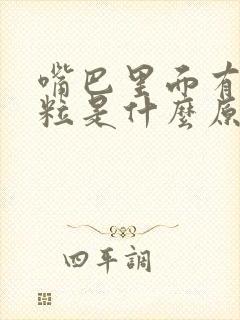 嘴巴里面有
粒是什麼原
四平調